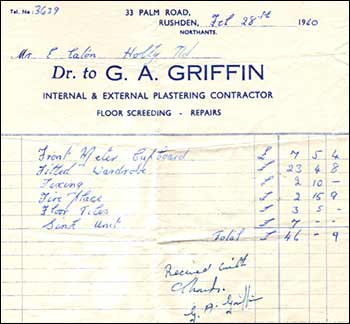 Tel. No. 3639
33 PALM ROAD,
RUSHDEN, Feb 28st 1960
NORTHANTS.
Mr E Eaton Holly Rd
Dr. to G. A. GRIFFIN
INTERNAL & EXTERNAL PLASTERING CONTRACTOR
FLOOR SCREEDING - REPAIRS
Front Meter Cupboard £ 7 5 4
Fitted Wardrobe £ 23 4 8
Fixing £ 2 10 -
Fire Place £ 2 15 9
Floor Tiles £ 3 5 -
Sink Unit £ 7 - -
Total £ 46 - 9
Received with
thanks.
G. A. Griffin